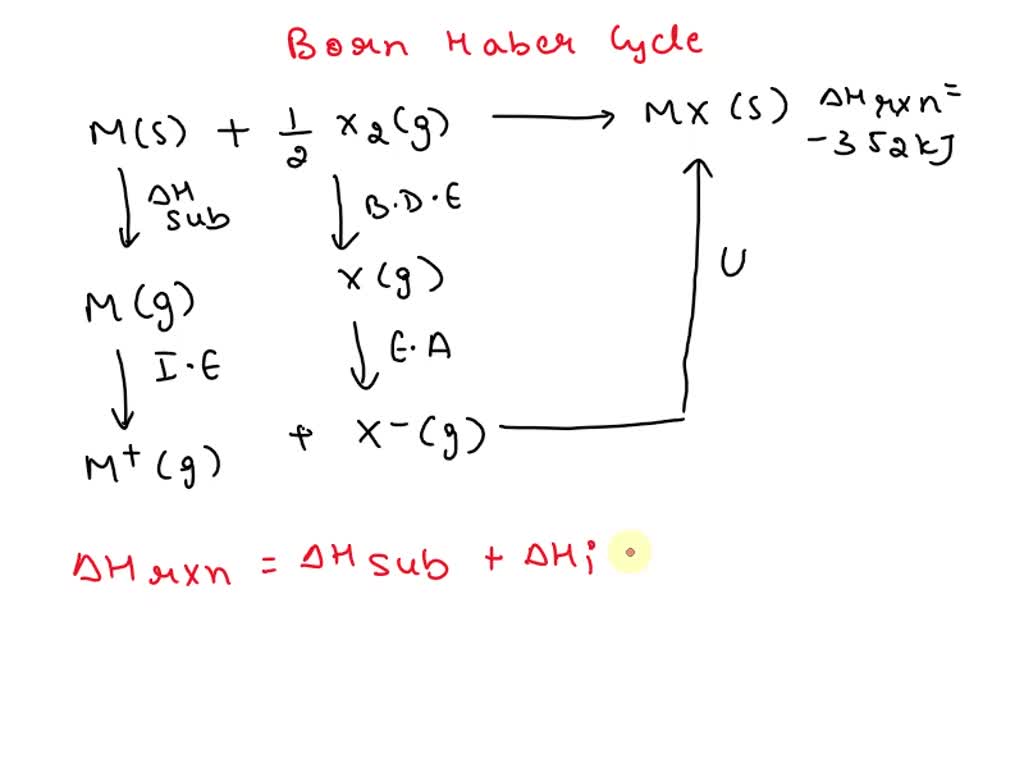 Born Haber Cycle
M(s) + 1/2 X2(g) → MX(s) ΔHrxn = -352kJ
ΔH sub
B.D.E
U
M(g)
X(g)
I.E
E.A
M+(g) + X-(g)
ΔHrxn = ΔHsub + ΔHi